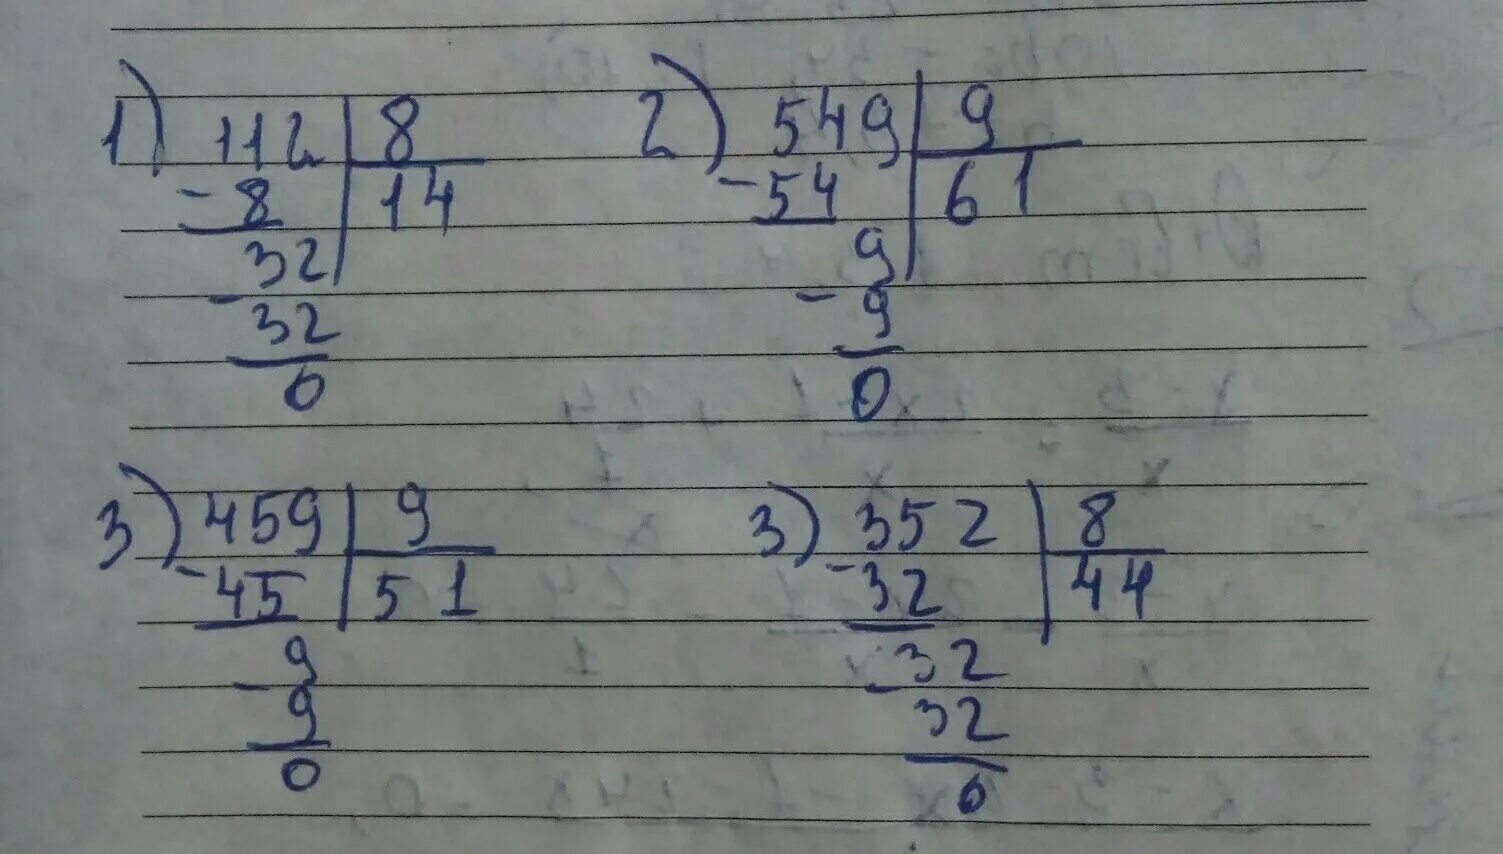 1) 112 | 8
- 8 | 14
32
- 32
0
2) 549 | 9
- 54 | 61
9
- 9
0
3) 459 | 9
- 45 | 51
9
- 9
0
3) 352 | 8
- 32 | 44
32
- 32
0